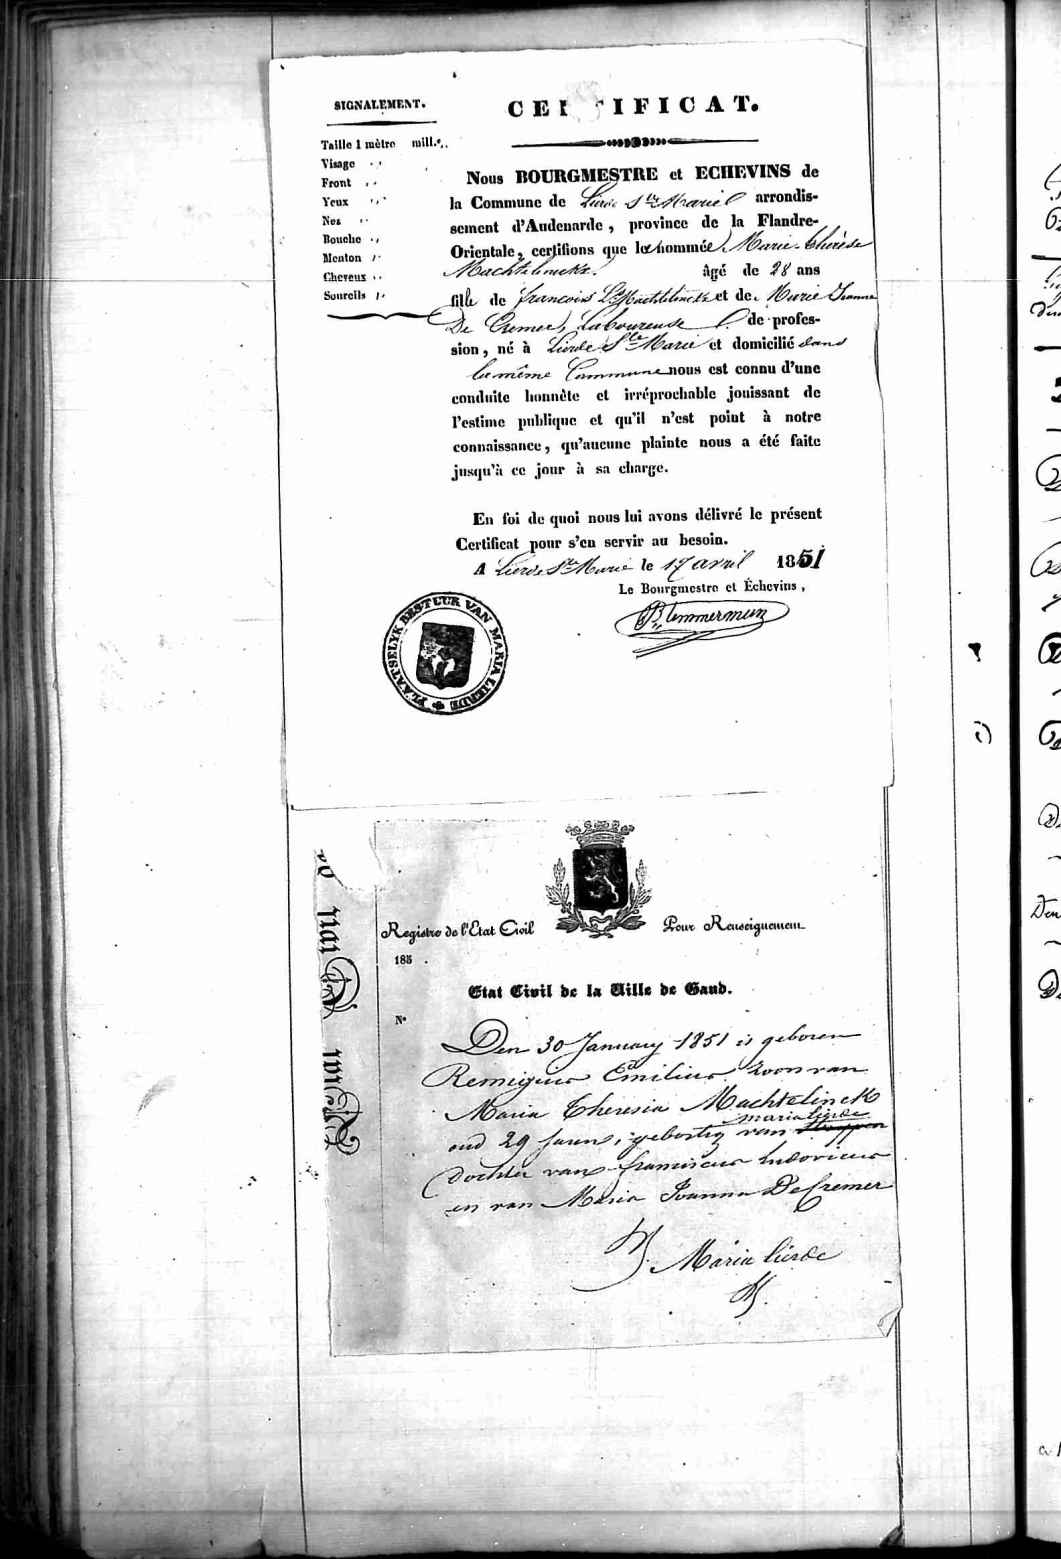 SIGNALEMENT.
Taille 1 mètre mill.
Visage
Front
Yeux
Nez
Bouche
Menton
Cheveux
Sourcils
CERTIFICAT.
Nous BOURGMESTRE et ECHEVINS de
la Commune de Lierde Ste Marie arrondis-
sement d'Audenarde, province de la Flandre-
Orientale, certifions que la nommée Marie-Thérèse
Machtelinckx. âgé de 28 ans
fille de francois Ls Machtelinckx et de Marie Jeanne
De Cremer, Laboureuse de profes-
sion, né à Lierde Ste Marie et domicilié dans
la même Commune nous est connu d'une
conduite honnête et irréprochable jouissant de
l'estime publique et qu'il n'est point à notre
connaissance, qu'aucune plainte nous a été faite
jusqu'à ce jour à sa charge.
En foi de quoi nous lui avons délivré le présent
Certificat pour s'en servir au besoin.
A Lierde Ste Marie le 17 avril 1851
Le Bourgmestre et Échevins,
PLAATSELYK BESTUUR VAN MARIA LIERDE
Registre de l'Etat Civil
Pour Renseignement
185 .
Etat Civil de la Ville de Gand.
No
Den 30 January 1851 is geboren
Remigius Emilius zoon van
Maria Theresia Machtelinck
maria lierde
oud 29 jaren, geboortig van
dochter van franciscus Ludovicus
en van Maria Joanna De Cremer
Maria lierde